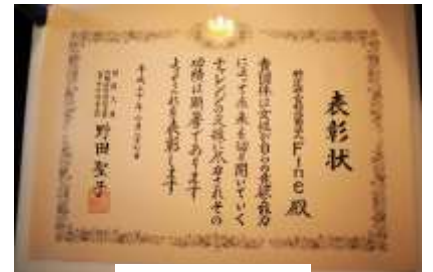 表彰状
特定非営利活動法人Fine殿
貴団体は女性が自らの意欲と能力
によって未来を切り開いていく
チャレンジの支援に尽力されその
功績は顕著であります
よってこれを表彰します
平成二十年六月
国務大臣
野田聖子